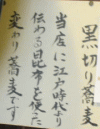 黒切り蕎麦
当店に江戸時代より
伝わる昆布を使った
変わり蕎麦です